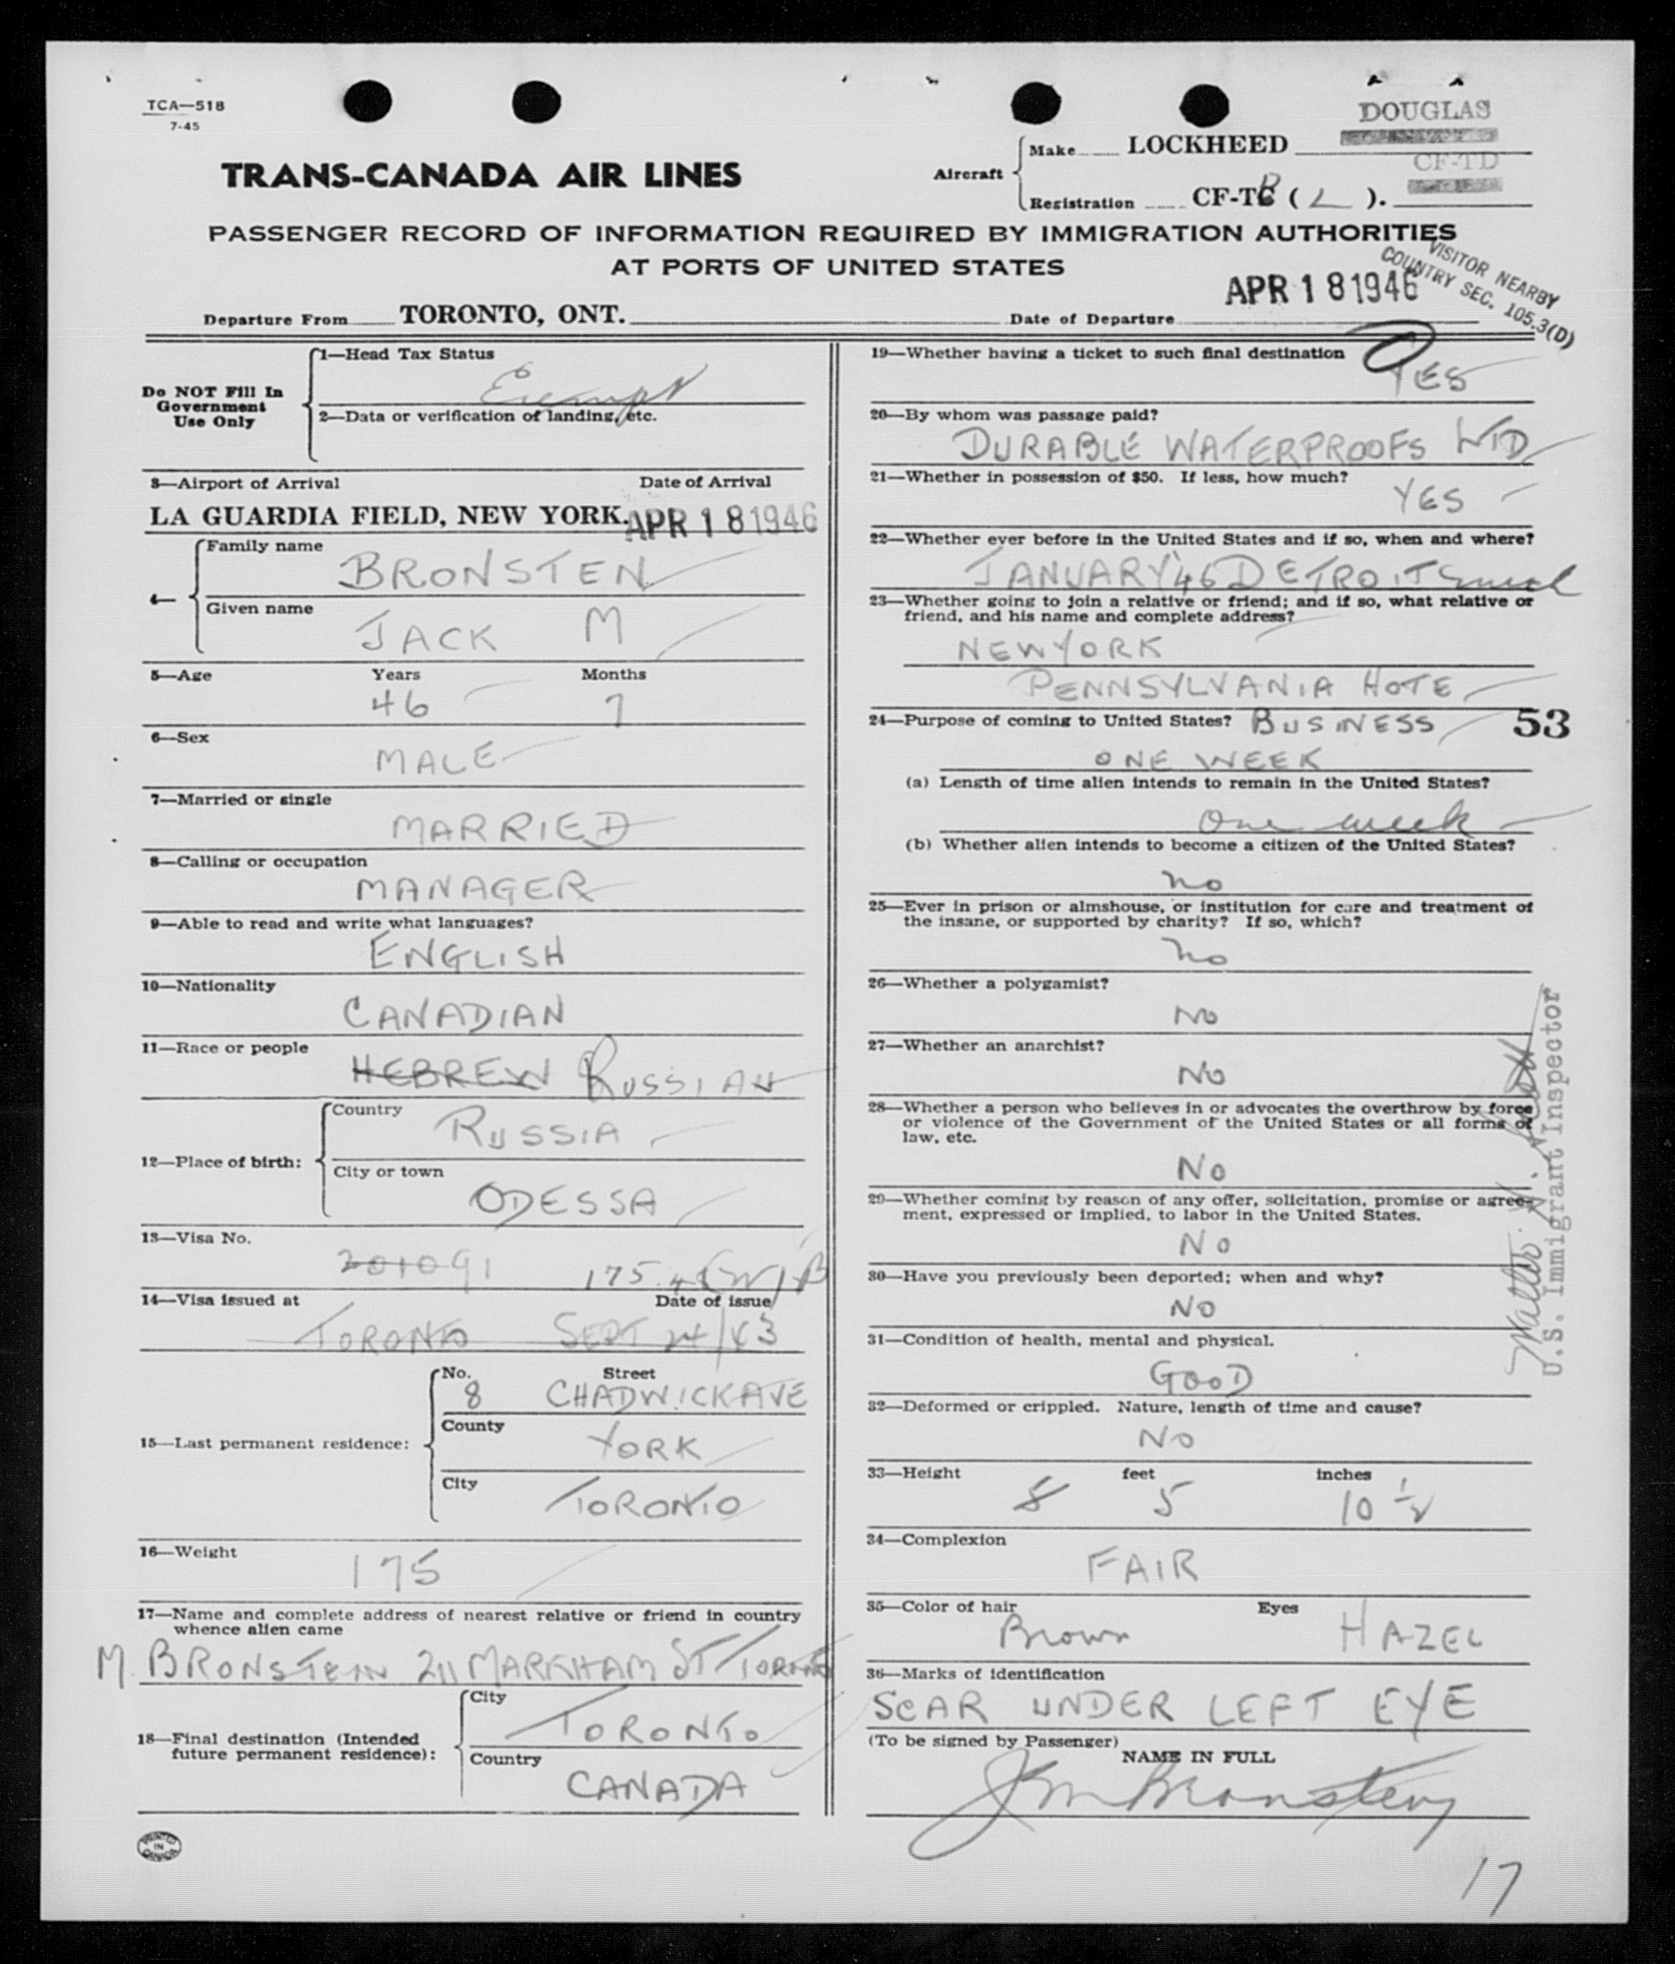 TCA—518
7-45
DOUGLAS
Aircraft
Make LOCKHEED
CF-TD
Registration CF-TB ( L ).
TRANS-CANADA AIR LINES
PASSENGER RECORD OF INFORMATION REQUIRED BY IMMIGRATION AUTHORITIES
AT PORTS OF UNITED STATES
VISITOR NEARBY
COUNTRY SEC. 105.3(D)
APR 18 1946
Departure From TORONTO, ONT. Date of Departure
Do NOT Fill In
Government
Use Only
1—Head Tax Status
Exempt
2—Data or verification of landing, etc.
3—Airport of Arrival Date of Arrival
LA GUARDIA FIELD, NEW YORK. APR 18 1946
4—
Family name
BRONSTEN
Given name
JACK M
5—Age Years Months
46 7
6—Sex
MALE
7—Married or single
MARRIED
8—Calling or occupation
MANAGER
9—Able to read and write what languages?
ENGLISH
10—Nationality
CANADIAN
11—Race or people
HEBREW RUSSIAN
12—Place of birth:
Country
RUSSIA
City or town
ODESSA
13—Visa No.
201091 175.
14—Visa issued at Date of issue
TORONTO SEPT 24/43
15—Last permanent residence:
No. Street
8 CHADWICK AVE
County
YORK
City
TORONTO
16—Weight
175
17—Name and complete address of nearest relative or friend in country
whence alien came
M. BRONSTEIN 211 MARKHAM ST TORONTO
18—Final destination (Intended
future permanent residence):
City
TORONTO
Country
CANADA
PRINTED
IN
CANADA
19—Whether having a ticket to such final destination
YES
20—By whom was passage paid?
DURABLE WATERPROOFS LTD
21—Whether in possession of $50. If less, how much?
YES
22—Whether ever before in the United States and if so, when and where?
JANUARY '46 DETROIT
23—Whether going to join a relative or friend; and if so, what relative or
friend, and his name and complete address?
NEW YORK
PENNSYLVANIA HOTE
24—Purpose of coming to United States? BUSINESS
53
ONE WEEK
(a) Length of time alien intends to remain in the United States?
One week
(b) Whether alien intends to become a citizen of the United States?
no
25—Ever in prison or almshouse, or institution for care and treatment of
the insane, or supported by charity? If so, which?
no
26—Whether a polygamist?
NO
27—Whether an anarchist?
NO
28—Whether a person who believes in or advocates the overthrow by force
or violence of the Government of the United States or all forms of
law, etc.
NO
29—Whether coming by reason of any offer, solicitation, promise or agree-
ment, expressed or implied, to labor in the United States.
NO
30—Have you previously been deported; when and why?
NO
31—Condition of health, mental and physical.
GOOD
32—Deformed or crippled. Nature, length of time and cause?
NO
33—Height feet inches
5 10 1/2
34—Complexion
FAIR
35—Color of hair Eyes
Brown HAZEL
36—Marks of identification
SCAR UNDER LEFT EYE
(To be signed by Passenger)
NAME IN FULL
J M Bronsten
17
Walter W.
U.S. Immigrant Inspector